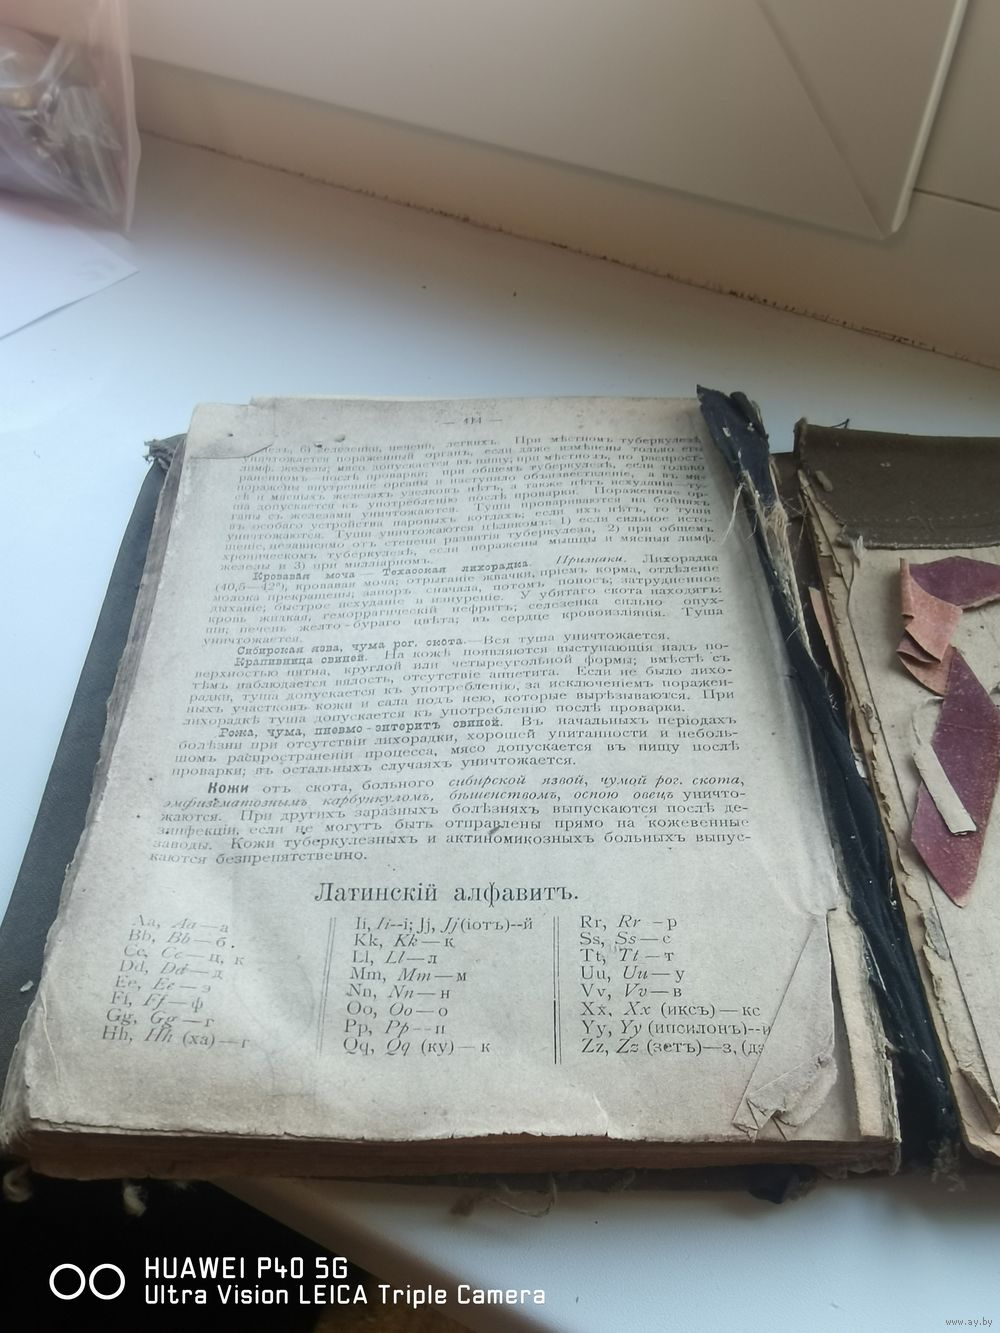 — 414 —
6) селезенки, печень, легкихъ. При мѣстномъ туберкулезѣ
уничтожается пораженный органъ, если даже измѣнены только его
лимф. железы; мясо допускается въ пищу; при мѣстномъ, но распрост-
раненномъ—послѣ проварки; при общемъ туберкулезѣ, если только
поражены внутренніе органы и наступило а въ мя-
сѣ и мясныхъ железахъ узелковъ нѣтъ, а также нѣтъ исхуданія—ту-
ша допускается къ употребленію послѣ проварки. Пораженные ор-
ганы съ железами уничтожаются. Туши провариваются на бойняхъ
въ особаго устройства паровыхъ котлахъ; если ихъ нѣтъ, то туши
уничтожаются. Туши уничтожаются цѣликомъ: 1) если сильное исто-
щеніе, независимо отъ степени развитія туберкулеза, 2) при общемъ
хроническомъ туберкулезѣ, если поражены мышцы и мясныя лимф.
железы и 3) при милліарномъ.
Кровавая моча — Техасская лихорадка. Признаки. Лихорадка
(40,5—42°), кровавая моча; отрыганіе жвачки, пріемъ корма, отдѣленіе
молока прекращены; запоръ сначала, потомъ поносъ; затрудненное
дыханіе; быстрое исхуданіе и изнуреніе. У убитаго скота находятъ:
кровь жидкая, геморрагическій нефритъ; селезенка сильно опух-
ши; печень желто-бураго цвѣта; въ сердце кровоизліянія. Туша
уничтожается.
Сибирская язва, чума рог. скота.—Вся туша уничтожается.
Крапивница свиней. На кожѣ появляются выступающія надъ по-
верхностью пятна, круглой или четыреугольной формы; вмѣстѣ съ
тѣмъ наблюдается вялость, отсутствіе аппетита. Если не было лихо-
радки, туша допускается къ употребленію, за исключеніемъ поражен-
ныхъ участковъ кожи и сала подъ нею, которые вырѣзываются. При
лихорадкѣ туша допускается къ употребленію послѣ проварки.
Рожа, чума, пневмо-энтеритъ свиней. Въ начальныхъ періодахъ
болѣзни при отсутствіи лихорадки, хорошей упитанности и неболь-
шомъ распространеніи процесса, мясо допускается въ пищу послѣ
проварки; въ остальныхъ случаяхъ уничтожается.
Кожи отъ скота, больного сибирской язвой, чумой рог. скота,
эмфизематознымъ карбункуломъ, бѣшенствомъ, оспою овецъ уничто-
жаются. При другихъ заразныхъ болѣзняхъ выпускаются послѣ де-
зинфекціи, если не могутъ быть отправлены прямо на кожевенные
заводы. Кожи туберкулезныхъ и актиномикозныхъ больныхъ выпус-
каются безпрепятственно.
Латинскій алфавитъ.
Aa, Aa—а
Bb, Bb—б.
Cc, Cc—ц, к
Dd, Dd—д
Ee, Ee—э
Ff, Ff—ф
Gg, Gg—г
Hh, Hh (ха)—г
Ii, Ii—і; Jj, Jj (іотъ)—й
Kk, Kk—к
Ll, Ll—л
Mm, Mm—м
Nn, Nn—н
Oo, Oo—о
Pp, Pp—п
Qq, Qq (ку)—к
Rr, Rr—р
Ss, Ss—с
Tt, Tt—т
Uu, Uu—у
Vv, Vv—в
Xx, Xx (иксъ)—кс
Yy, Yy (ипсилонъ)—и
Zz, Zz (зетъ)—з, (дз
HUAWEI P40 5G
Ultra Vision LEICA Triple Camera
www.ay.by